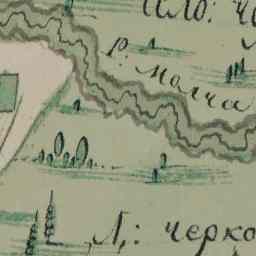 село: че
Р. молча
Л: черко